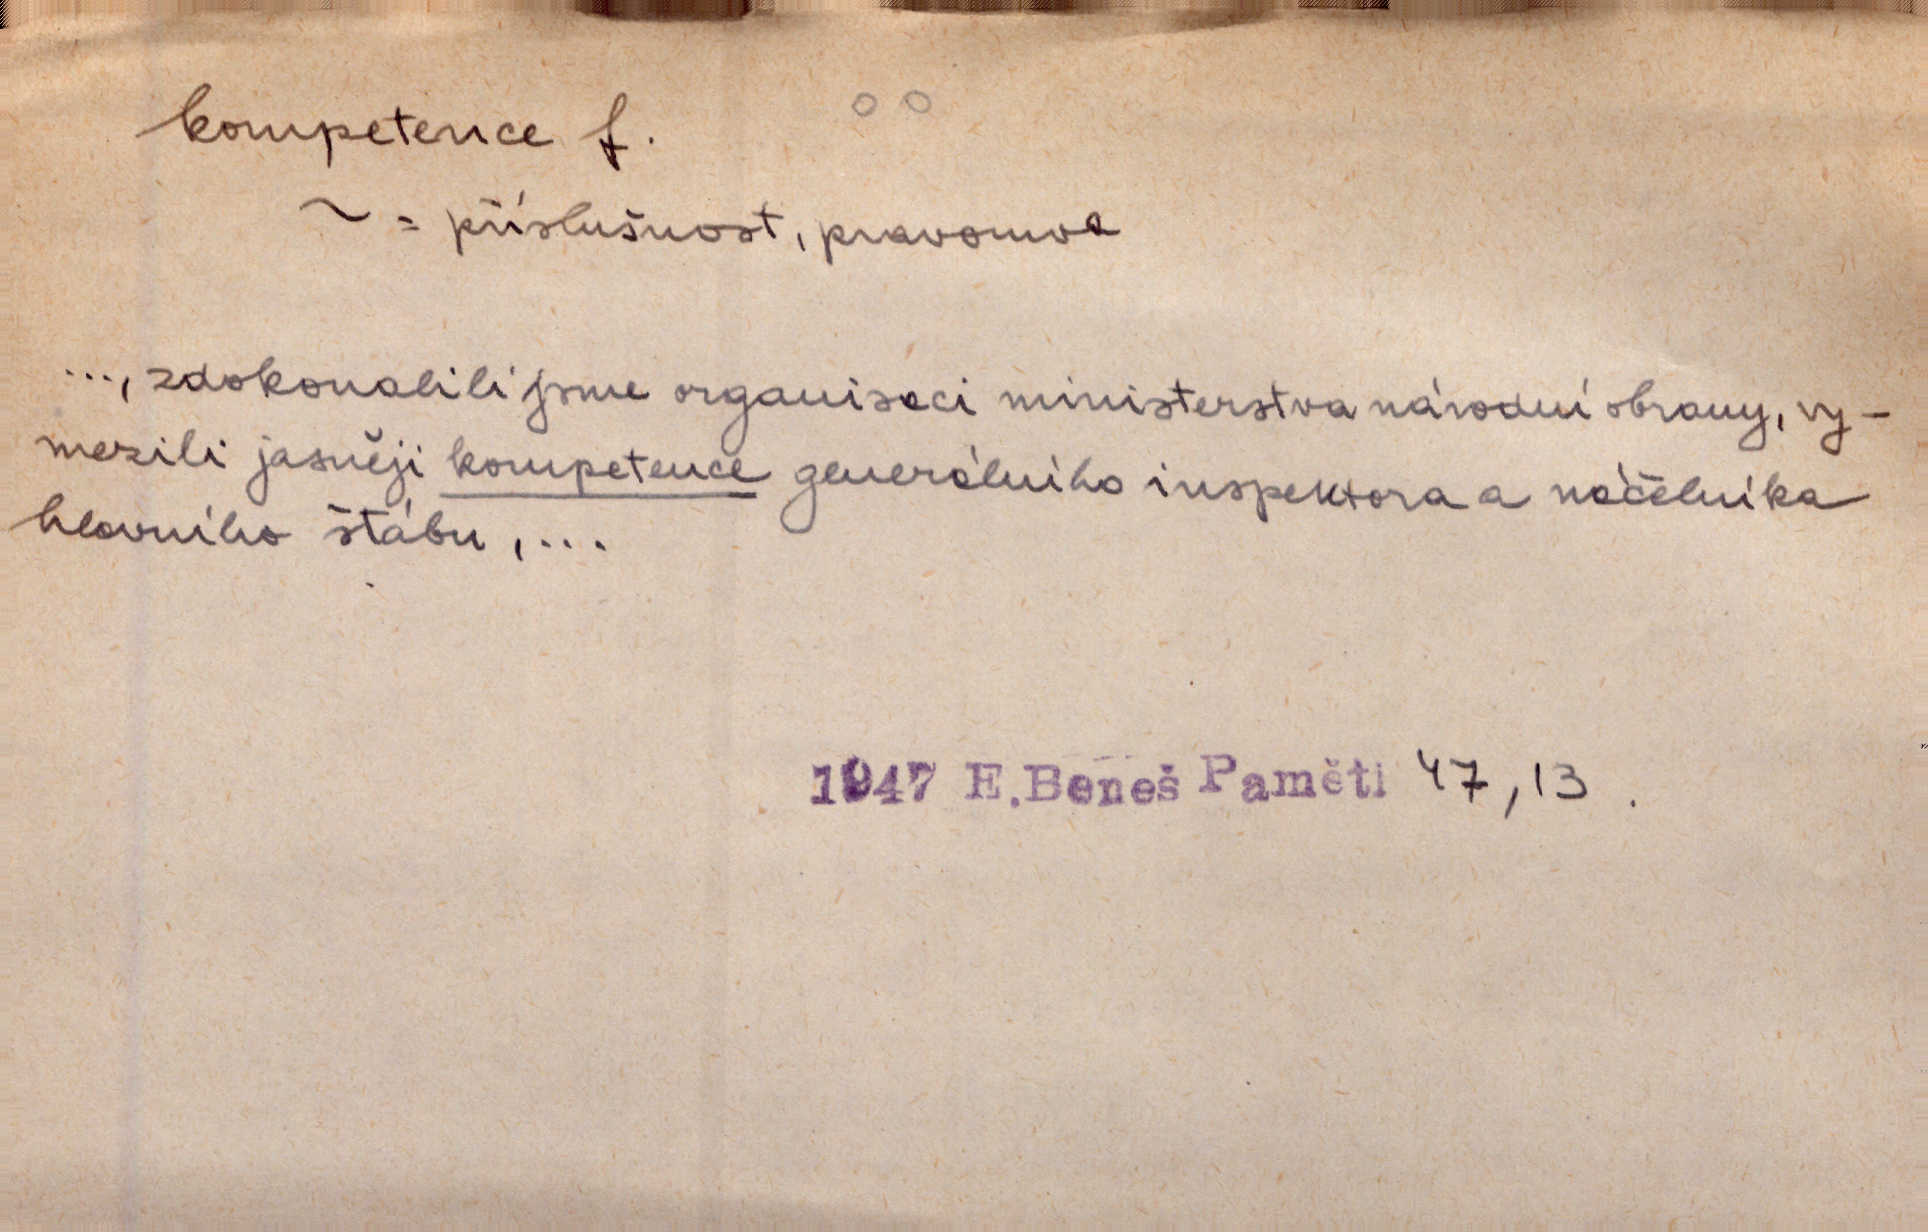 kompetence f.
~ = příslušnost, pravomoc
..., zdokonalili jsme organisaci ministerstva národní obrany, vy-
mezili jasněji kompetence generálního inspektora a náčelníka
hlavního štábu, ...
1947 E. Beneš Paměti 47, 13.